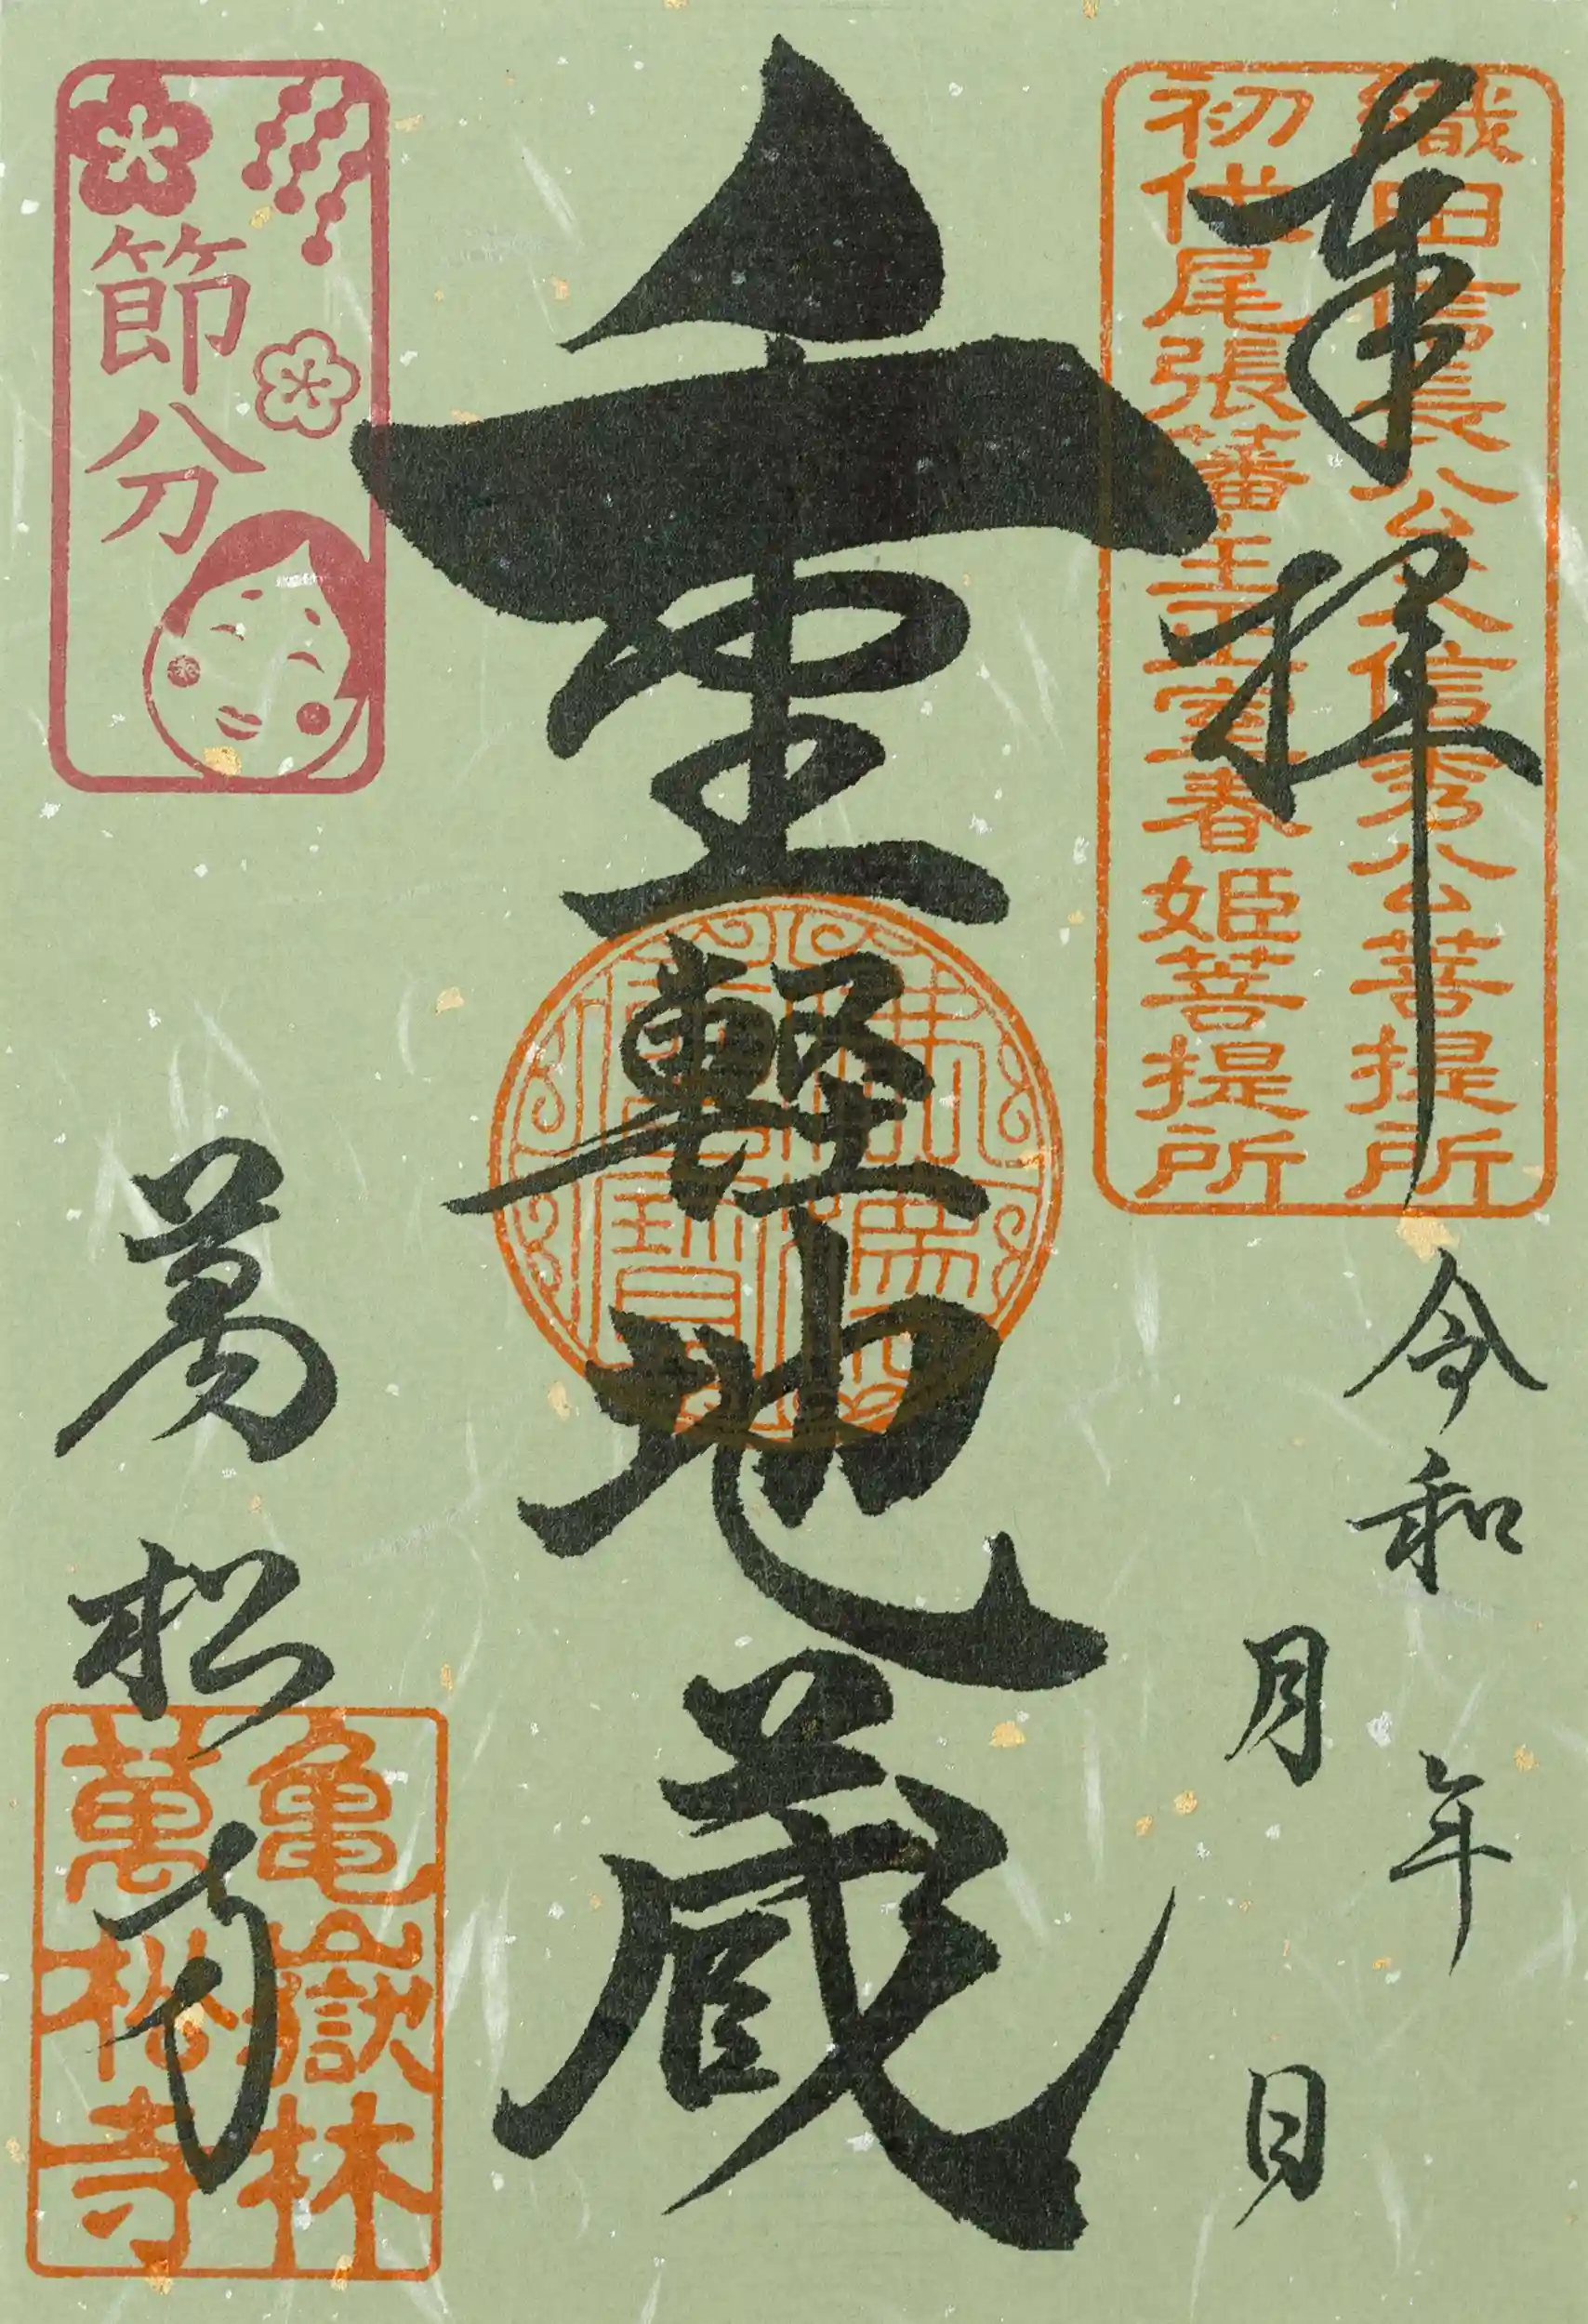 奉拝
織田信長公父信秀公菩提所
初代尾張藩主正室春姫菩提所
令和 年
月 日
重軽地蔵
節分
萬松寺
亀嶽林
萬松寺